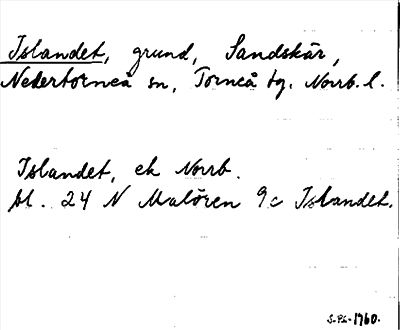 Islandet, grund, Sandskär,
Nedertorneå sn, Torneå tg. Norrb. l.
Islandet, ek Norrb.
bl. 24 N Malören 9c Islandet.
1960.